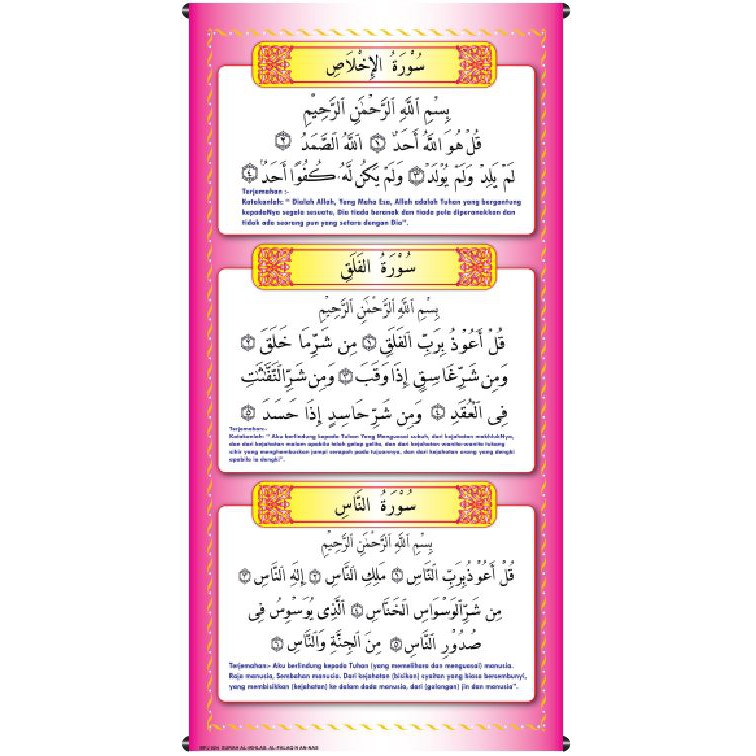 سُوْرَةُ الإِخْلَاصِ
بِسْمِ ٱللَّهِ ٱلرَّحْمَٰنِ ٱلرَّحِيْمِ
قُلْ هُوَ اللَّهُ أَحَدٌ ۝١ اللَّهُ الصَّمَدُ ۝٢
لَمْ يَلِدْ وَلَمْ يُوْلَدْ ۝٣ وَلَمْ يَكُنْ لَّهُ كُفُوًا أَحَدٌ ۝٤
Terjemahan :-
Katakanlah: " Dialah Allah, Yang Maha Esa, Allah adalah Tuhan yang bergantung
kepadaNya segala sesuatu, Dia tiada beranak dan tiada pula diperanakkan dan
tidak ada seorang pun yang setara dengan Dia".
سُوْرَةُ الفَلَقِ
بِسْمِ ٱللَّهِ ٱلرَّحْمَٰنِ ٱلرَّحِيْمِ
قُلْ أَعُوْذُ بِرَبِّ الفَلَقِ ۝١ مِن شَرِّ مَا خَلَقَ ۝٢
وَمِن شَرِّ غَاسِقٍ إِذَا وَقَبَ ۝٣ وَمِن شَرِّ النَّفَّٰثَٰتِ
فِى الْعُقَدِ ۝٤ وَمِن شَرِّ حَاسِدٍ إِذَا حَسَدَ ۝٥
Terjemahan:-
Katakanlah: " Aku berlindung kepada Tuhan Yang Menguasai subuh, dari kejahatan makhlukNya,
dan dari kejahatan malam apabila telah gelap gelita, dan dari kejahatan wanita-wanita tukang
sihir yang menghembuskan jampi serapah pada tujuannya, dan dari kejahatan orang yang dengki
apabila ia dengki".
سُوْرَةُ النَّاسِ
بِسْمِ ٱللَّهِ ٱلرَّحْمَٰنِ ٱلرَّحِيْمِ
قُلْ أَعُوْذُ بِرَبِّ النَّاسِ ۝١ مَلِكِ النَّاسِ ۝٢ إِلَٰهِ النَّاسِ ۝٣
مِن شَرِّ الْوَسْوَاسِ الْخَنَّاسِ ۝٤ ٱلَّذِى يُوَسْوِسُ فِى
صُدُوْرِ النَّاسِ ۝٥ مِنَ الْجِنَّةِ وَالنَّاسِ ۝٦
Terjemahan:- Aku berlindung kepada Tuhan (yang memelihara dan menguasai) manusia.
Raja manusia, Sembahan manusia. Dari kejahatan (bisikan) syaitan yang biasa bersembunyi,
yang membisikkan (kejahatan) ke dalam dada manusia, dari (golongan) jin dan manusia".